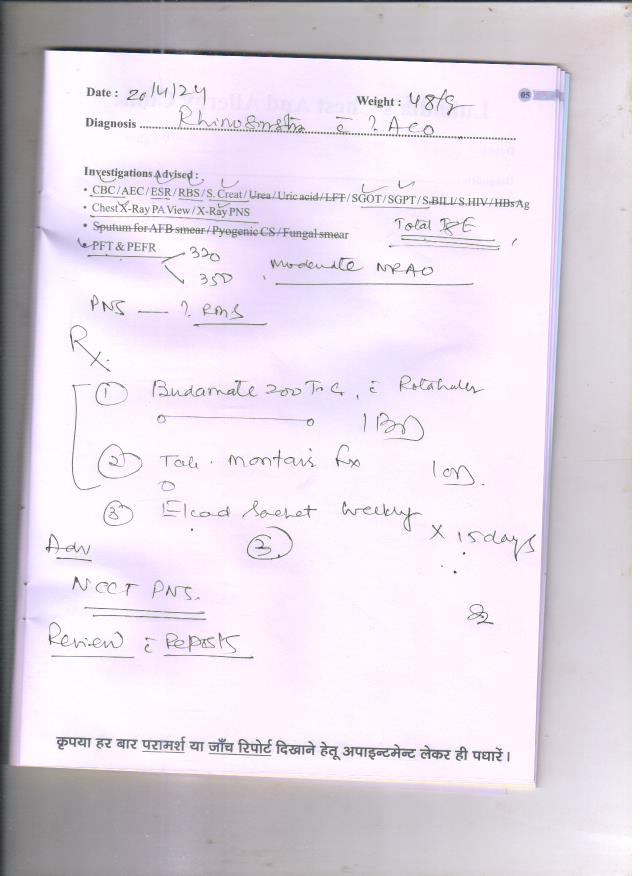 05
Date : 20/4/24 Weight : 48
Diagnosis ..... c̄ ? ACO
Investigations Advised :
• CBC/AEC/ESR/RBS/S. Creat/Urea/Uric acid/LFT/SGOT/SGPT/S.BILI/S.HIV/HBsAg
• Chest X-Ray PA View / X-Ray PNS
Total IgE
• Sputum for AFB smear / Pyogenic CS / Fungal smear
• PFT & PEFR 320
350
Moderate
PNS — ?
Rx
① Budamate 200 c̄ Rotahaler
1 BD
② Tab. 1 OD.
③ Sachet weekly
③ X 15 days
Adv
NCCT PNS.
Review c̄ Reports
कृपया हर बार परामर्श या जाँच रिपोर्ट दिखाने हेतू अपाइन्टमेन्ट लेकर ही पधारें।